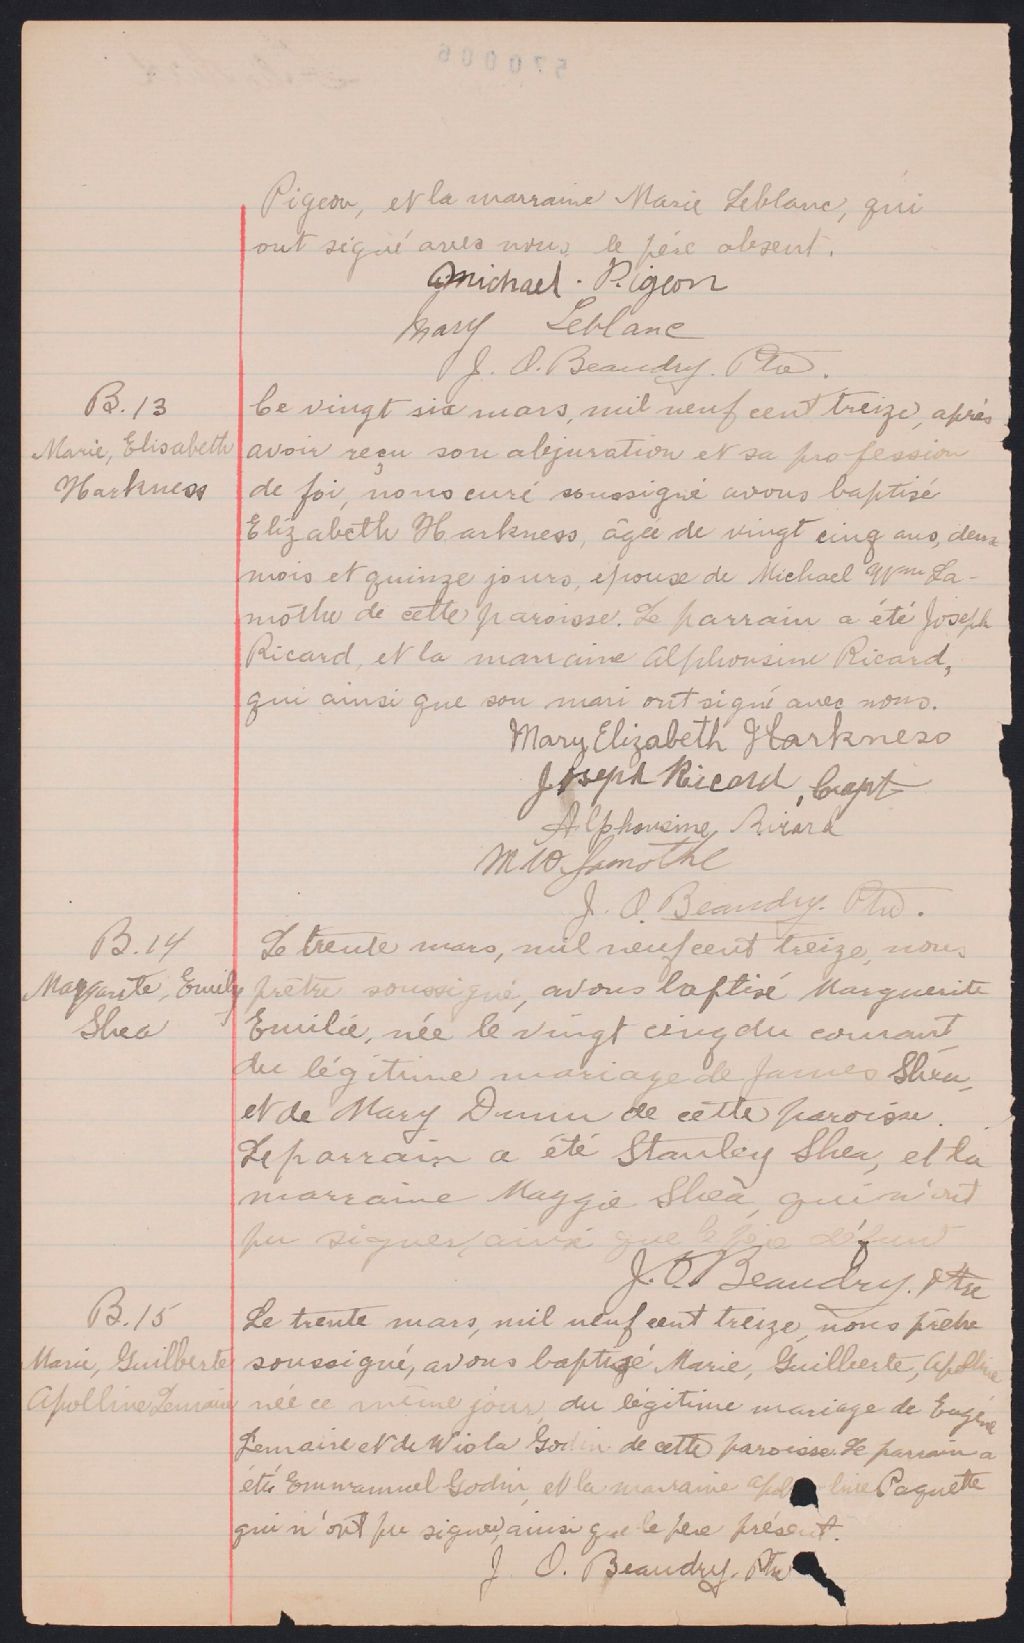 570006
Pigeon, et la marraine Marie Leblanc, qui
ont signé avec nous, le père absent.
Michael Pigeon
Mary Leblanc
J. O. Beaudry. Ptre.
B. 13
Marie, Elisabeth
Harkness
Ce vingt six mars, mil neuf cent treize, après
avoir reçu son abjuration et sa profession
de foi, nous curé soussigné avons baptisé
Elizabeth Harkness, âgée de vingt cinq ans, deux
mois et quinze jours, épouse de Michael Wm La-
mothe de cette paroisse. Le parrain a été Joseph
Ricard, et la marraine Alphonsine Ricard,
qui ainsi que son mari ont signé avec nous.
Mary Elizabeth Harkness
Joseph Ricard, Capt
Alphonsine Ricard
M W Lamothe
J. O. Beaudry. Ptre.
B. 14
Margarite, Emily
Shea
Le trente mars, mil neuf cent treize, nous
prêtre soussigné, avons baptisé Marguerite
Emilie, née le vingt cinq du courant
du légitime mariage de James Shea,
et de Mary Dunn de cette paroisse.
Le parrain a été Stanley Shea, et la
marraine Maggie Shea, qui n'ont
pu signer, ainsi que le père
J. O. Beaudry. Ptre
B. 15
Marie, Guilberte
Apolline Lemaire
Le trente mars, mil neuf cent treize, nous prêtre
soussigné, avons baptisé Marie, Guilberte, Apolline
née ce même jour, du légitime mariage de Eugène
Lemaire et de Wiola Godin de cette paroisse. Le parrain a
été Emmanuel Godin, et la marraine Apolline Paquette
qui n'ont pu signer, ainsi que le père présent.
J. O. Beaudry. Ptre